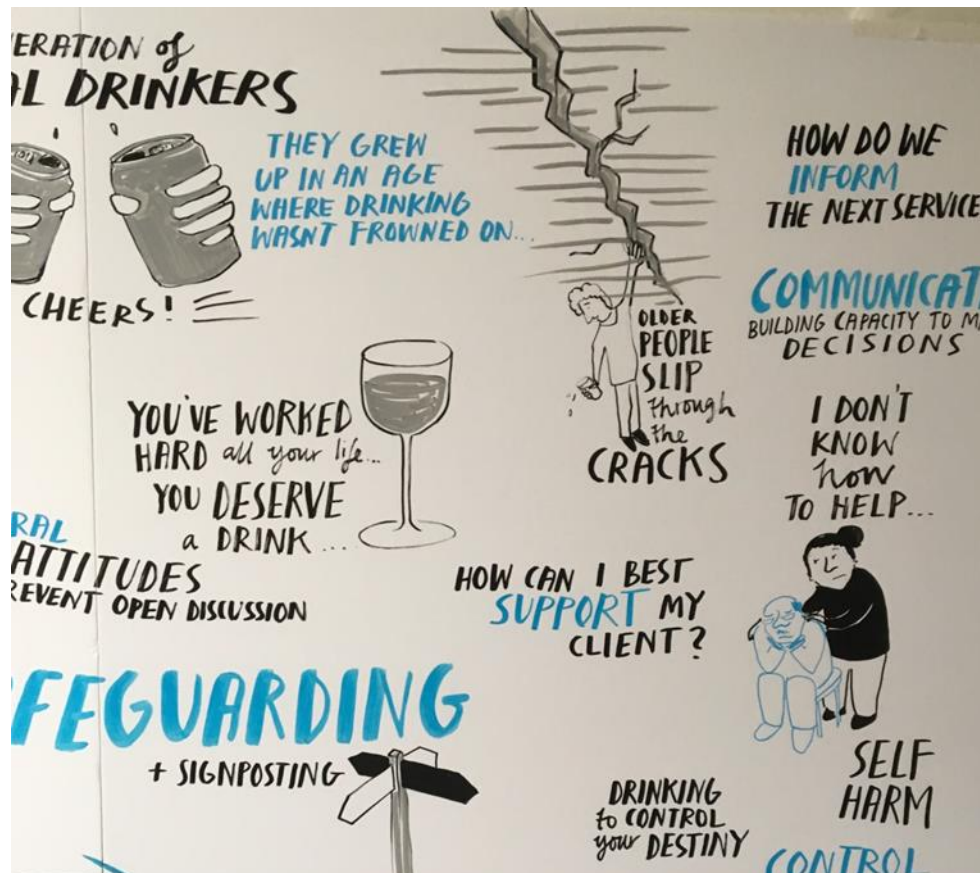 ERATION of
AL DRINKERS
THEY GREW
UP IN AN AGE
WHERE DRINKING
WASNT FROWNED ON...
CHEERS!
YOU'VE WORKED
HARD all your life...
YOU DESERVE
a DRINK...
RAL
ATTITUDES
REVENT OPEN DISCUSSION
FEGUARDING
+ SIGNPOSTING
OLDER
PEOPLE
SLIP
through
the
CRACKS
HOW CAN I BEST
SUPPORT MY
CLIENT?
DRINKING
to CONTROL
your DESTINY
HOW DO WE
INFORM
THE NEXT SERVICE
COMMUNICAT
BUILDING CAPACITY TO M
DECISIONS
I DON'T
KNOW
how
TO HELP...
SELF
HARM
CONTROL